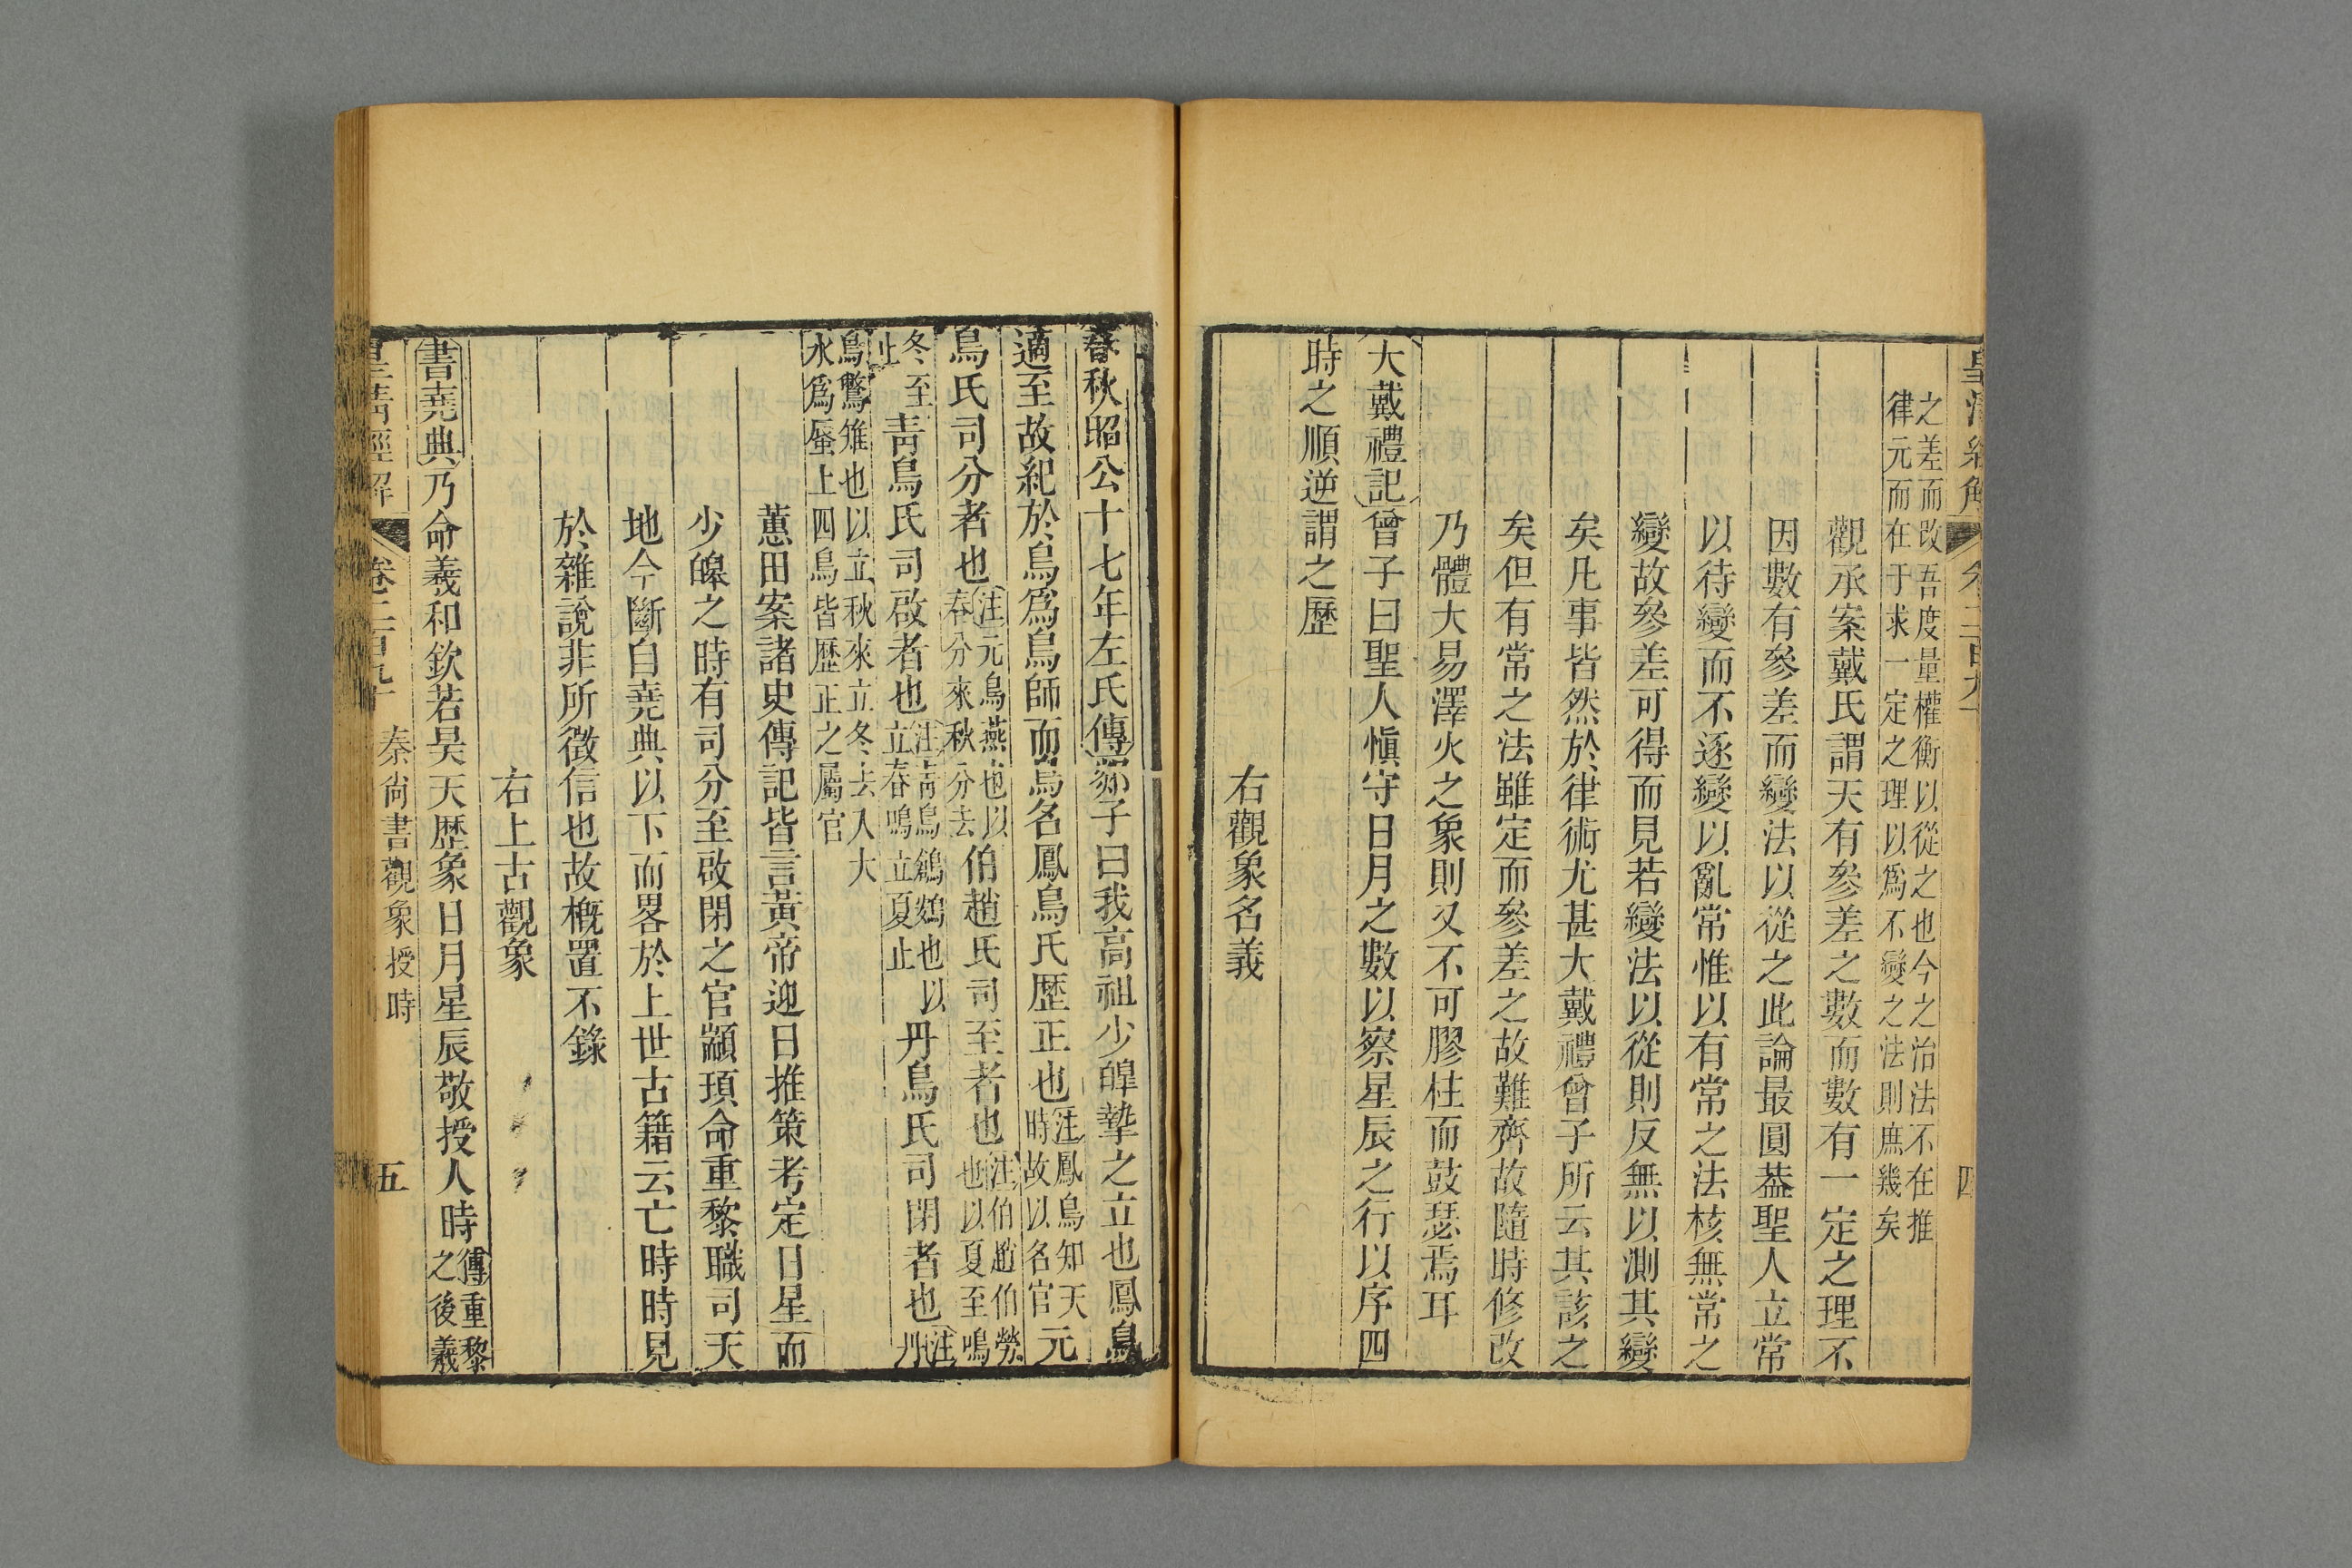 之差而改吾度量權衡以從之也今之治法不在推
律元而在于求一定之理以爲不變之法則庶幾矣
觀承案戴氏謂天有參差之數而數有一定之理不
因數有參差而變法以從之此論最圓葢聖人立常
以待變而不逐變以亂常惟以有常之法核無常之
變故參差可得而見若變法以從則反無以測其變
矣凡事皆然於律術尤甚大戴禮曾子所云其該之
矣但有常之法雖定而參差之故難齊故隨時修改
乃體大易澤火之象則又不可膠柱而鼓瑟焉耳
大戴禮記曾子曰聖人愼守日月之數以察星辰之行以序四
時之順逆謂之歷
右觀象名義
春秋昭公十七年左氏傳郯子曰我高祖少皥摯之立也鳳鳥
適至故紀於鳥爲鳥師而鳥名鳳鳥氏歷正也注鳳鳥知天時故以名官元
鳥氏司分者也注元鳥燕也以春分來秋分去伯趙氏司至者也注伯趙伯勞也以夏至鳴
冬至止靑鳥氏司啟者也注靑鳥鶬鴳也以立春鳴立夏止丹鳥氏司閉者也注丹
鳥鷩雉也以立秋來立冬去入大水爲蜃上四鳥皆歷正之屬官
蕙田案諸史傳記皆言黃帝迎日推策考定日星而
少皥之時有司分至啟閉之官顓頊命重黎職司天
地今斷自堯典以下而畧於上世古籍云亡時時見
於雜說非所徵信也故槪置不錄
右上古觀象
書堯典乃命羲和欽若昊天歷象日月星辰敬授人時傳重黎之後羲
皇淸經解 卷二百九十 秦尙書觀象授時 五